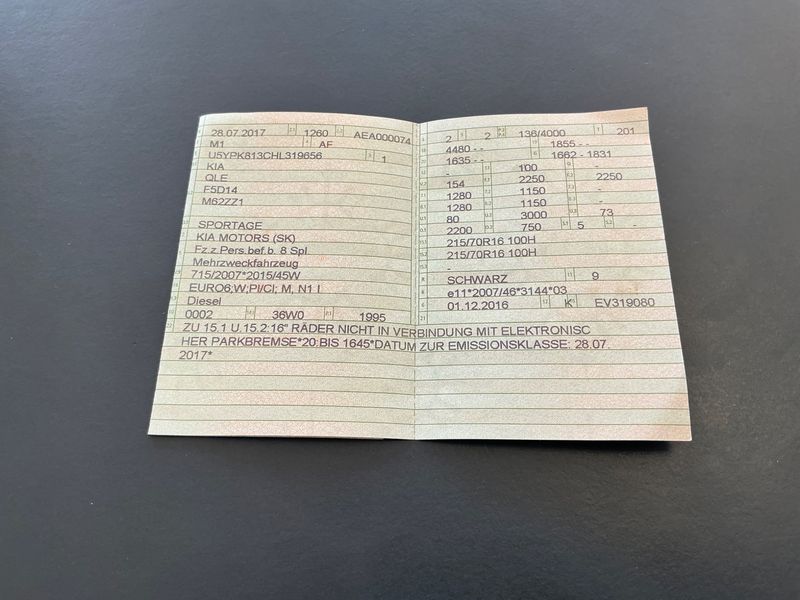 28.07.2017 1260 AEA000074
M1 AF
U5YPK813CHL319656 1
KIA
QLE
F5D14
M62ZZ1
SPORTAGE
KIA MOTORS (SK)
Fz.z.Pers.bef.b. 8 Spl
Mehrzweckfahrzeug
715/2007*2015/45W
EURO6;W;PI/CI; M, N1 I
Diesel
0002 36W0 1995
2 2 136/4000 201
4480 - - 1855 - -
1635 - - 1662 - 1831
- 100 -
154 2250 2250
1280 1150 -
1280 1150 -
80 3000 73
2200 750 5 -
215/70R16 100H
215/70R16 100H
-
SCHWARZ 9
e11*2007/46*3144*03
01.12.2016 K EV319080
ZU 15.1 U.15.2:16" RÄDER NICHT IN VERBINDUNG MIT ELEKTRONISC
HER PARKBREMSE*20:BIS 1645*DATUM ZUR EMISSIONSKLASSE: 28.07.
2017*